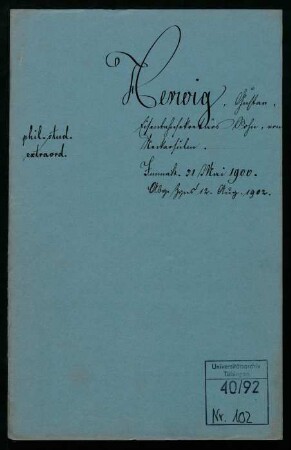 Herwig, Gustav,
Eisenbahnsekretärs Sohn, von
Neckarsulm.
phil. stud.
extraord.
Immatr. 21 Mai 1900.
Abg. Zgns 12. Aug. 1902.
Universitätsarchiv
Tübingen
40/92
Nr. 102